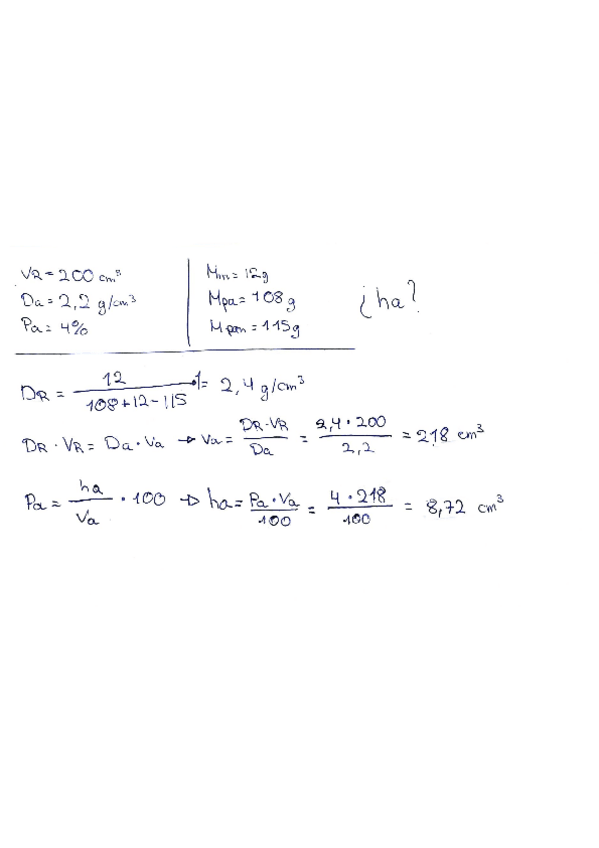 VR = 200 cm³
Da = 2,2 g/cm³
Pa = 4%
Mm = 12g
Mpa = 108 g
Mpam = 115g
¿ha?
DR = 12 / (108+12-115) · 1 = 2,4 g/cm³
DR · VR = Da · Va → Va = DR·VR / Da = 2,4 · 200 / 2,2 = 218 cm³
Pa = ha / Va · 100 → ha = Pa · Va / 100 = 4 · 218 / 100 = 8,72 cm³